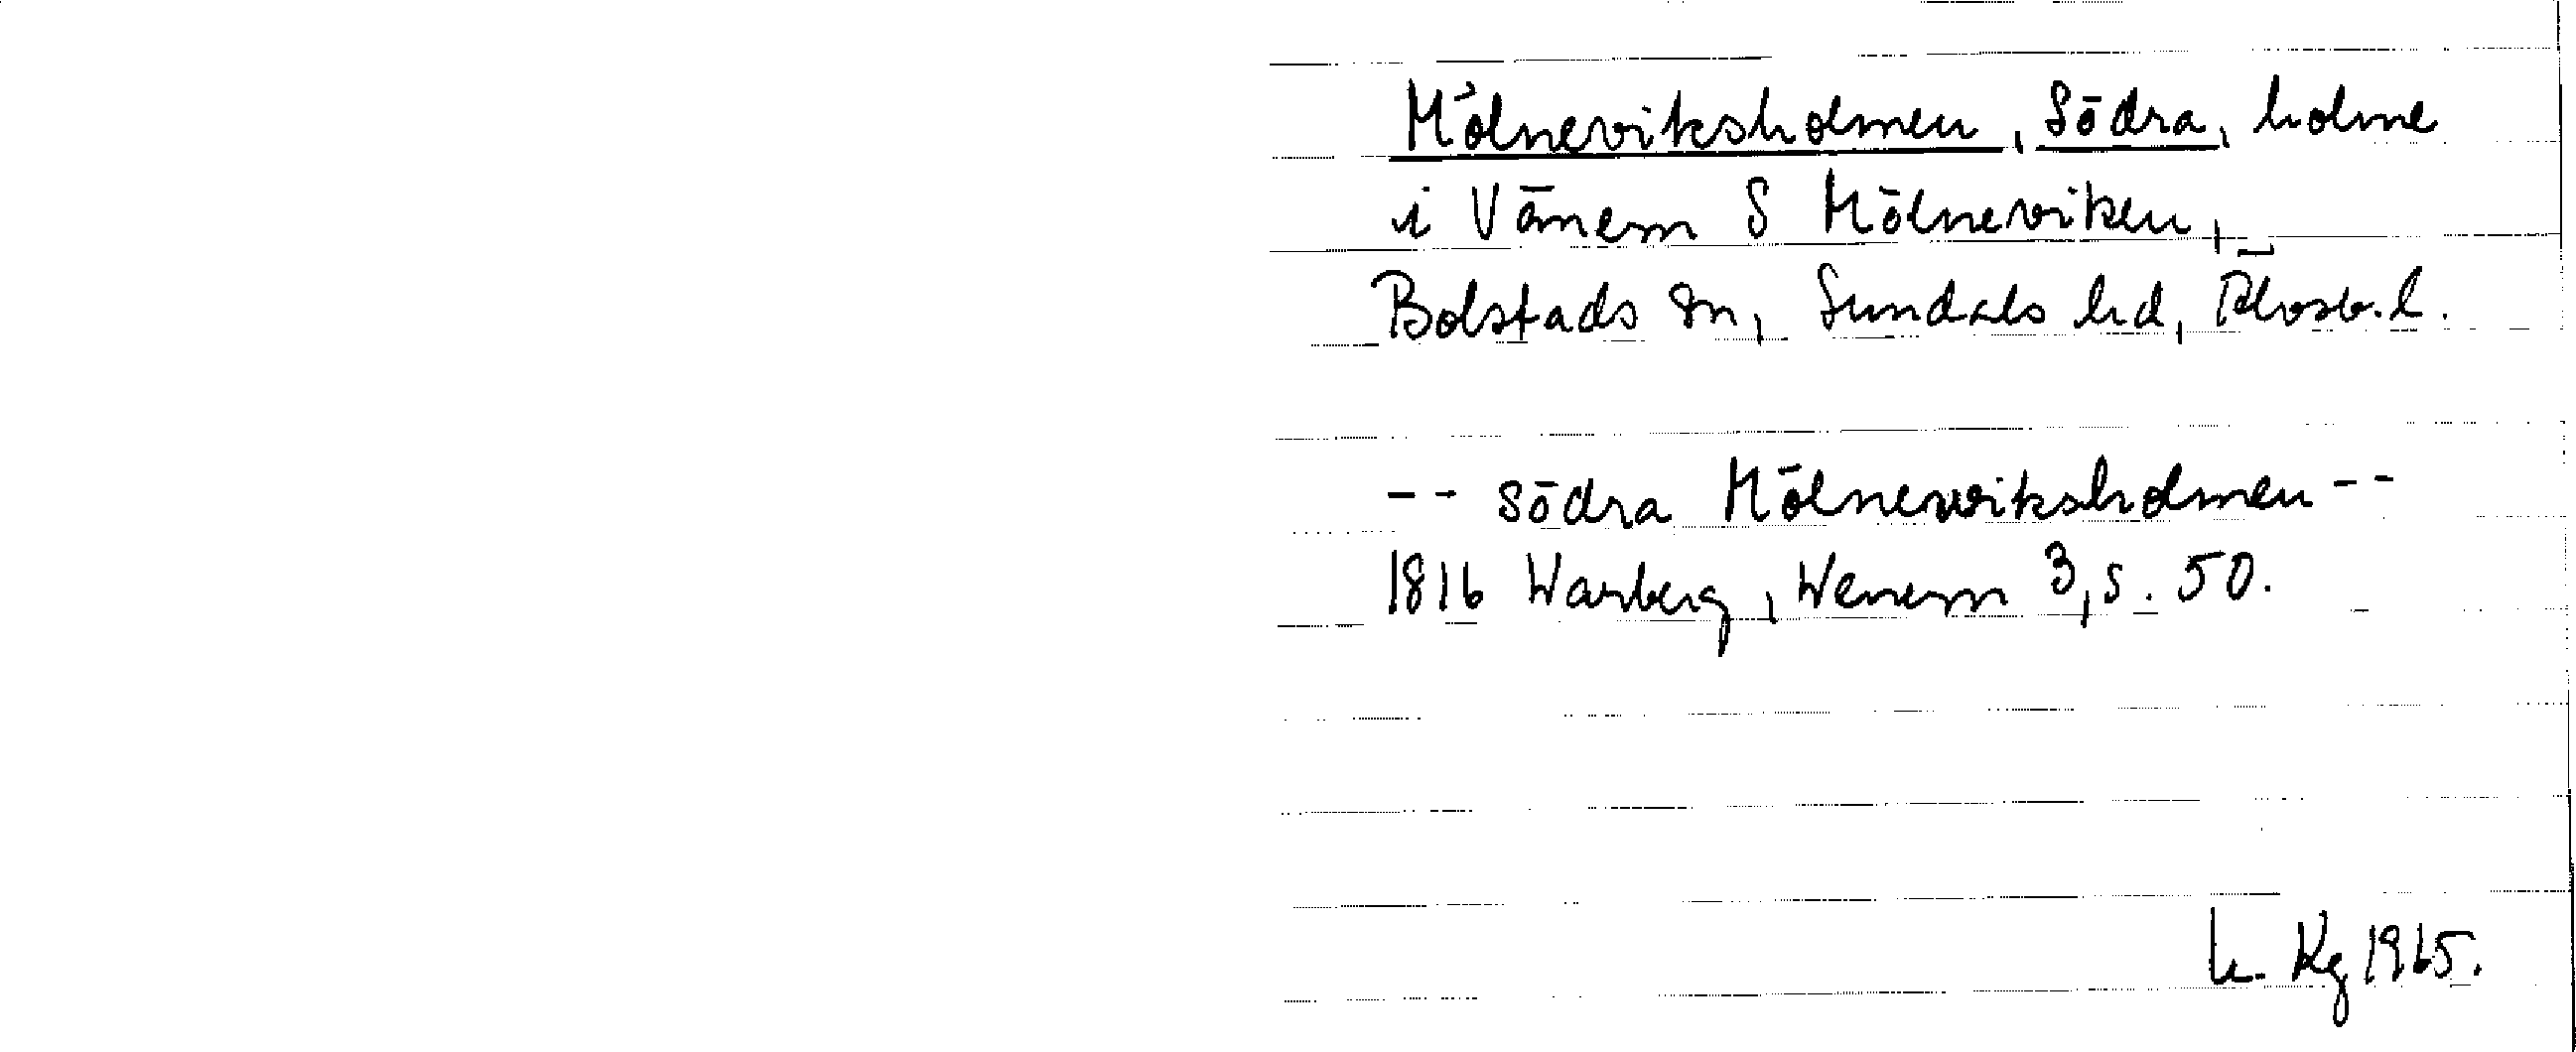 Mölneviksholmen, Södra, holme
i Vänern S Mölneviken,
Bolstads sn, Sundals hd, Älvsb. l.
-- södra Mölnewiksholmen --
1816 Warberg, Wenern 3, s. 50.
Kg 1965.